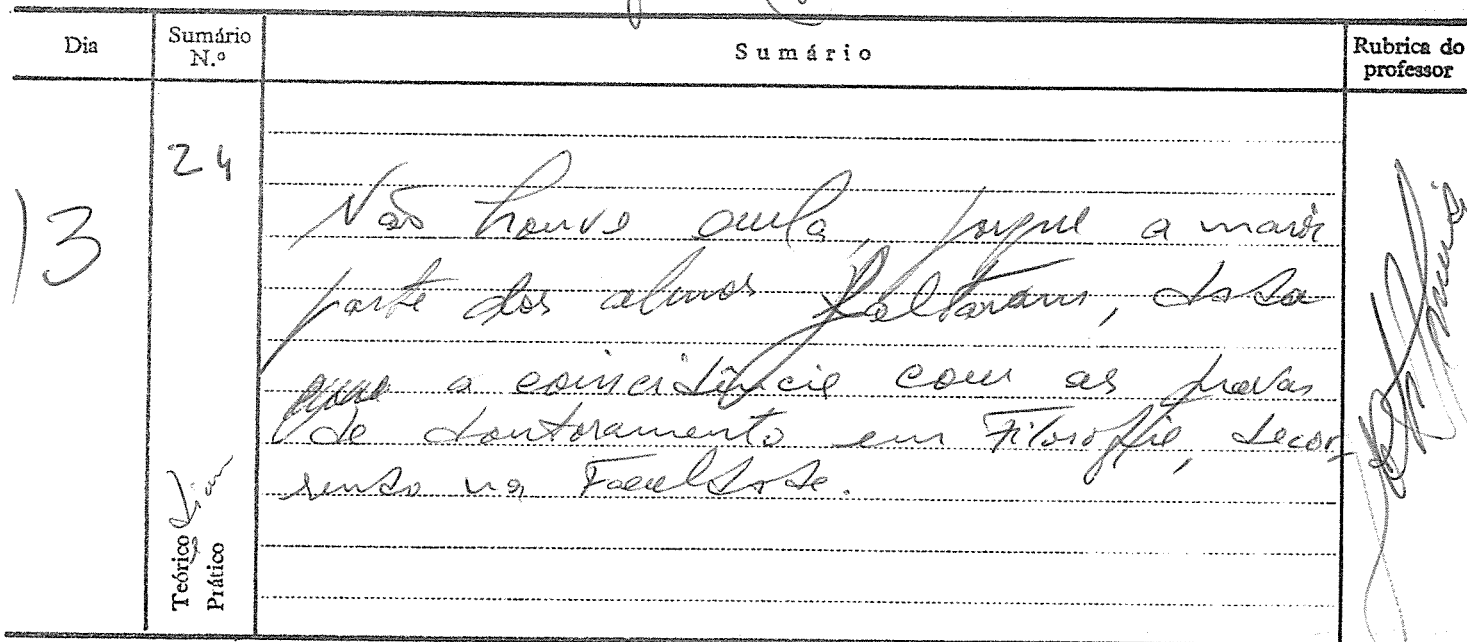 Dia
Sumário N.º
Sumário
Rubrica do professor
13
24
Não houve aula, porque a maior
parte dos alunos faltaram, dada
a coincidência com as provas
de doutoramento em Filosofia, decor-
rendo na Faculdade.
Teórico
Prático